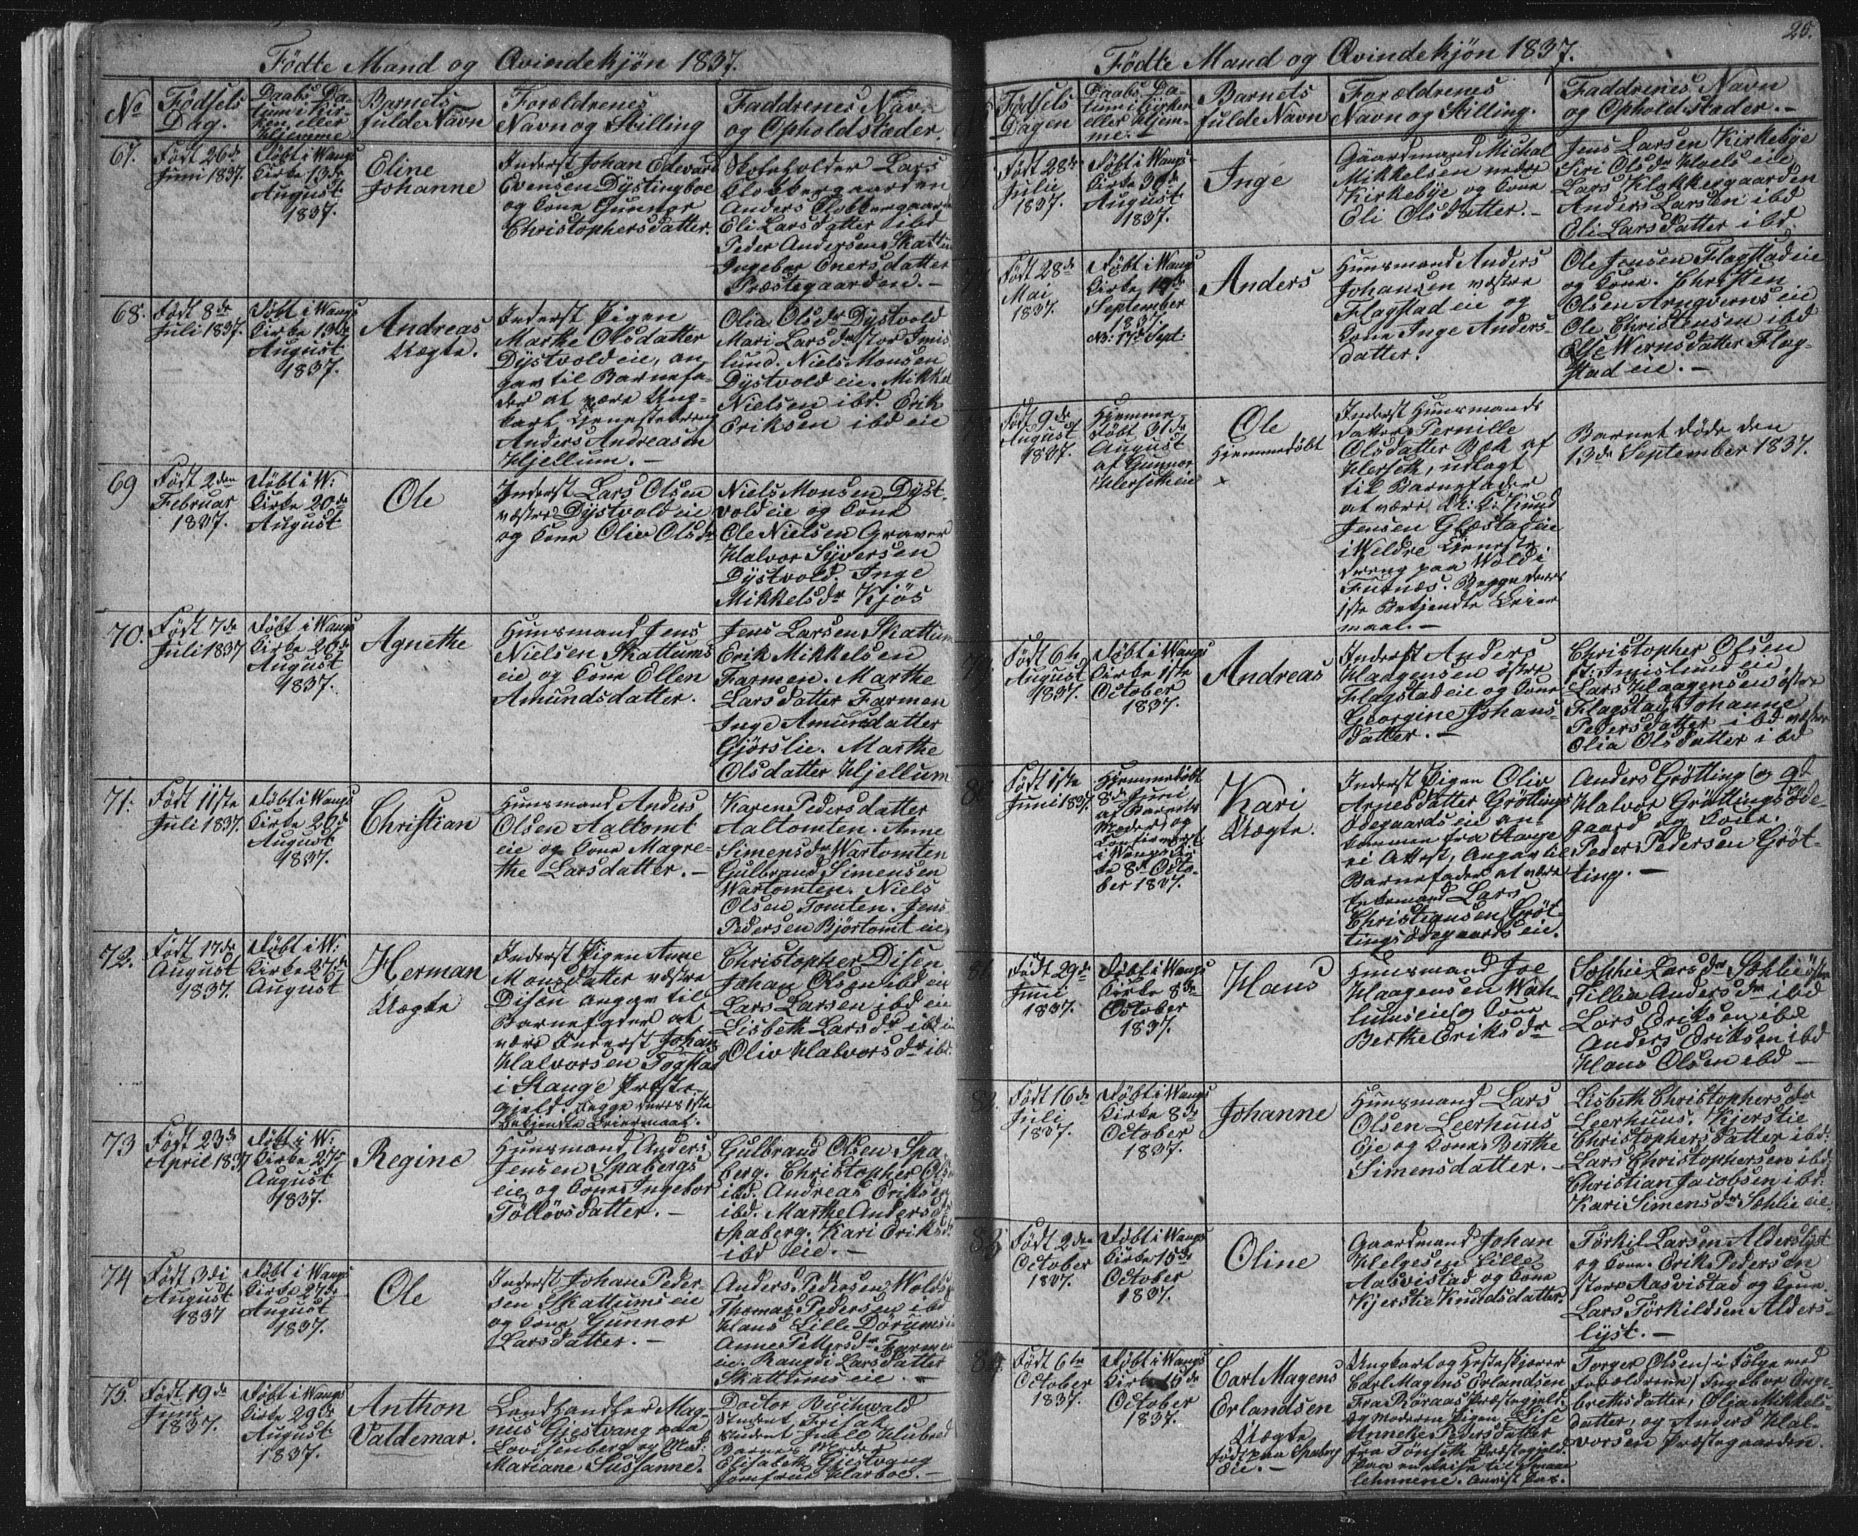 Fødte Mand og Qvindekjøn 1837.
No
Fødsels Dag.
Daabs Datum i Kirken eller Hjemme
Barnets fulde Navn
Forældrenes Navn og Stilling
Faddrenes Navn og Opholdstæder.
67.
Født 26de
Juni 1837.
Døbt i Wangs
Kirke 13de
August
1837.
Eline
Johanne
Inderst Johan Edevart
Evensen Dystingboe
og Cone Gunnor
Christophersdatter.
Lars
Klokkergaarden
Anders Klokkergaarden
Eli Larsdatter ibd
Peder Andersen Skattum
Ingebor Enersdatter
Præstegaarden.—
68.
Født 8de
Juli 1837.
Døbt i Wangs
Kirke 13de
August
1837.
Andreas
Uægte.
Inderst Pigen
Marthe Olsdatter
Dystvold eie, an-
gav til Barnefa-
der at være Ung-
karl Tjenestedreng
Anders Andreasen
Hjellum.—
Olia Olsdr Dystvold
Mari Larsdr stor Imis
lund. Niels Monsen
Dystvold eie. Mikkel
Nielsen ibd. Erik
Eriksen ibd eie
69
Født 2den
Februar
1837.
Døbt i W:
Kirke 20de
August
Ole
Inderst Lars Olsen
vestre Dystvold eie
og Cone Olia Olsdr
Niels Monsen Dyst-
vold eie og Cone
Ole Nielsen Graver
Halvor Syversen
Dystvold. Inge
Mikkelsdr Kjös
70.
Født 7de
Juli 1837
Døbt i Wangs
Kirke 20de
August
1837.
Agnethe
Huusmand Jens
Nielsen Skattums
eie og Cone Ellen
Amundsdatter.
Jens Larsen Skattum
Erik Mikkelsen
Farmen. Marthe
Larsdatter Farmen
Inge Amundatter
Gjörslie. Marthe
Olsdatter Hjellum
71.
Født 11ste
Juli 1837.
Døbt i Wangs
Kirke 20de
August
1837.
Christian
Huusmand Anders
Olsen Aaltomt
eie og Cone Magre-
the Larsdatter.—
Karen Pedersdatter
Aaltomten. Anne
Simensdr Wartomten
Gulbrand Simensen
Wartomten. Niels
Olsen Tomten. Jens
Pedersen Bjørtomt eie
72.
Født 17de
August
1837.
Døbt i W:
Kirke 27de
August
Herman
Uægte
Inderst Pigen Anne
Monsdatter vestre
Disen angav til
Barnefader at
være Inderst Johan
Halvorsen Fogstad
i Stange Præste-
gjeld. Begge deres 1ste
bekjendte Leiermaal.
Christopher Disen
Johan Olsen ibd eie
Lars Larsen ibd eie
Lisbeth Larsdr ibd eie
Oliv Halvorsdr ibd.
73
Født 23de
April 1837
Døbt i W:
Kirke 27de
August
1837.
Regine
Huusmand Anders
Jensen Spabergs
eie og Cone Ingebor
Töllövsdatter.—
Gulbrand Olsen Spa-
berg. Christopher Olsen
ibd. Andreas Eriksen
ibd. Marthe Andersdr
Spaberg. Kari Eriksdr
ibd eie.—
74
Født 3di
August
1837
Døbt i Wangs
Kirke 27de
August
1837.
Ole
Inderst Johan Peder-
sen Skattums eie
og Cone Gunnor
Larsdatter.—
Anders Pedersen Wold
Thomas Pedersen ibd
Hans Lille Dörums
Anne Pettersdr Farmen
eie. Rangdi Larsdatter
Skattums eie.—
75.
Født 19de
Juni
1837.
Døbt i Wangs
Kirke 29de
August
1837.
Anthon
Valdemar.
Landhandler Mag-
nus Gjestvang paa
Lovisenberg og Mad:
Mariane Sussanne.
Doctor Buchwald
Student Frisak
Elisabeth Gjestvang
Jomfrue Harboe.—
20.
Fødte Mand og Qvindekjøn 1837.
Fødsels Dagen
Daabs Datum i Kirken eller Hjemme.
Barnets fulde Navn
Forældrenes Navn og Stilling.
Faddrenes Navn og Opholdstæder.—
Født 28de
Julii
1837.
Døbt i Wangs
Kirke 30de
August
1837.
Inge
Gaardmand Michal
Mikkelsen nedre
Kirkebye og Cone
Eli Olsdatter.—
Jens Larsen Kirkebye
Siri Olsdr Hoels eie
Lars Klokkergaarden
Anders Larsen ibd
Eli Larsdatter ibd.
Født 28de
Mai
1837.
Døbt i Wangs
Kirke
September
1837.
NB: 17de Sept.
Anders
Huusmand Anders
Johansen vestre
Flagstad eie og
Cone Inge Anders-
datter.
Ole Jensen Flagstad eie
og Cone. Christen
Olsen Arnqverns eie
Ole Christensen ibd
Else Wernsdatter Flag-
stad eie.—
Født 9de
August
1837.
Hjemme-
døbt 31de
August
af Gunnor
Herseth eie
Ole
Hjemmedøbt
x
Inderst Huusmands
datter Pernille
Olsdatter Bek af
Herseth, udlagt
til Barnefader
at være
Jensen Glæstad eie
i Weldre Tjeneste-
dreng paa Wold i
Furnæs. Begge deres
1ste Bekjendte Leier
maal.—
Barnet døde den
13de September 1837.
Født 6te
August
1837.
Døbt i Wangs
Kirke 1ste
October
1837.
Andreas
Inderst Anders
Haagensen østre
Flagstad eie og Cone
Georgine Johans-
datter.—
Christopher Olsen
st: Imislund eie
Lars Haagensen østre
Flagstad. Johanne
Pedersdatter ibd vestre
Olia Olsdatter ibd
Født 1ste
Juni 1837.
Hjemmedøbt
8de Juni
af Barnets
Moder, og
Confirmert
i Wangs Kir-
ke 8de Octo-
ber 1837.
Kari
Uægte.
Inderst Pigen Oliv
Arnesdatter Grötting
Ödegaards eie an-
kommen fra Stange
ei Attest, Angav til
Barnefader at være
Enkemand Lars
Christiansen Gröt-
tingsödegaards eie.
Anders Grötting og
Halvor Gröttingsöde-
gaard og Cone.
Peder Pedersen Gröt-
ting.—
81.
Født 29de
Juni
1837.
Døbt i Wangs
Kirke 8de
October
1837.
Hans
Huusmand Joe
Haagensen Wah-
lums eie og Cone
Berthe Eriksdr
Sophie Larsdr Söhlie østre
Tillia Andersdr ibd
Lars Eriksen ibd
Anders Eriksen ibd
Hans Olsen ibd—
82.
Født 16de
Juli
1837.
Døbt i Wangs
Kirke 8de
October
1837.
Johanne
Huusmand Lars
Olsen Leerhuus
Eje og Cone Berthe
Simensdatter.—
Lisbeth Christophersdr
Leerhuus. Kjerstie
Christophersdatter ibd.
Lars Christophersen ibd.
Christian Jacobsen ibd.
Kari Simensdr Söhlie eie.
83
Født 2den
October
1837.
Døbt i Wangs
Kirke 15de
October
1837.
Oline
Gaardmand Johan
Helgesen Lille
Aasvistad og Cone
Kjerstie Knudsdatter.
Törkil Larsen Alderslyst
og Cone. Erik Pedersen
Store Aasvistad og Cone
Lars Törkildsen Alders-
lyst.—
84.
Født 6te
October
1837.
Døbt i Wangs
Kirke 15de
October
1837.
Carl Magens
Erlandsen
Uægte
født paa Spaberg
Eie.—
Ungkarl og Hesteskjærer
Carl Magens Erlandsen
fra Röraas Præstegjeld
og Moderen Pigen Lise
Anneke Pedersdatter
fra Tönseth Præstegjeld
paa en Reise til Smaa-
lehnene.
Torger Olsen i Følge med
Forældrene, Ingebor Enge-
brethsdatter, Olia Mikkels-
datter, og Anders Hal-
vorsen Præstegaarden.